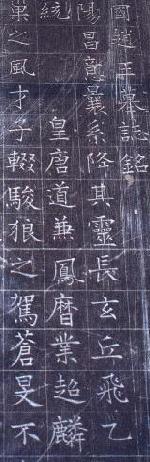 國趙王墓誌銘
陽昌意曩系降其靈長玄丘飛乙
統 皇唐道兼鳳曆業超麟
巢之風才子輟駿狼之駕蒼旻不